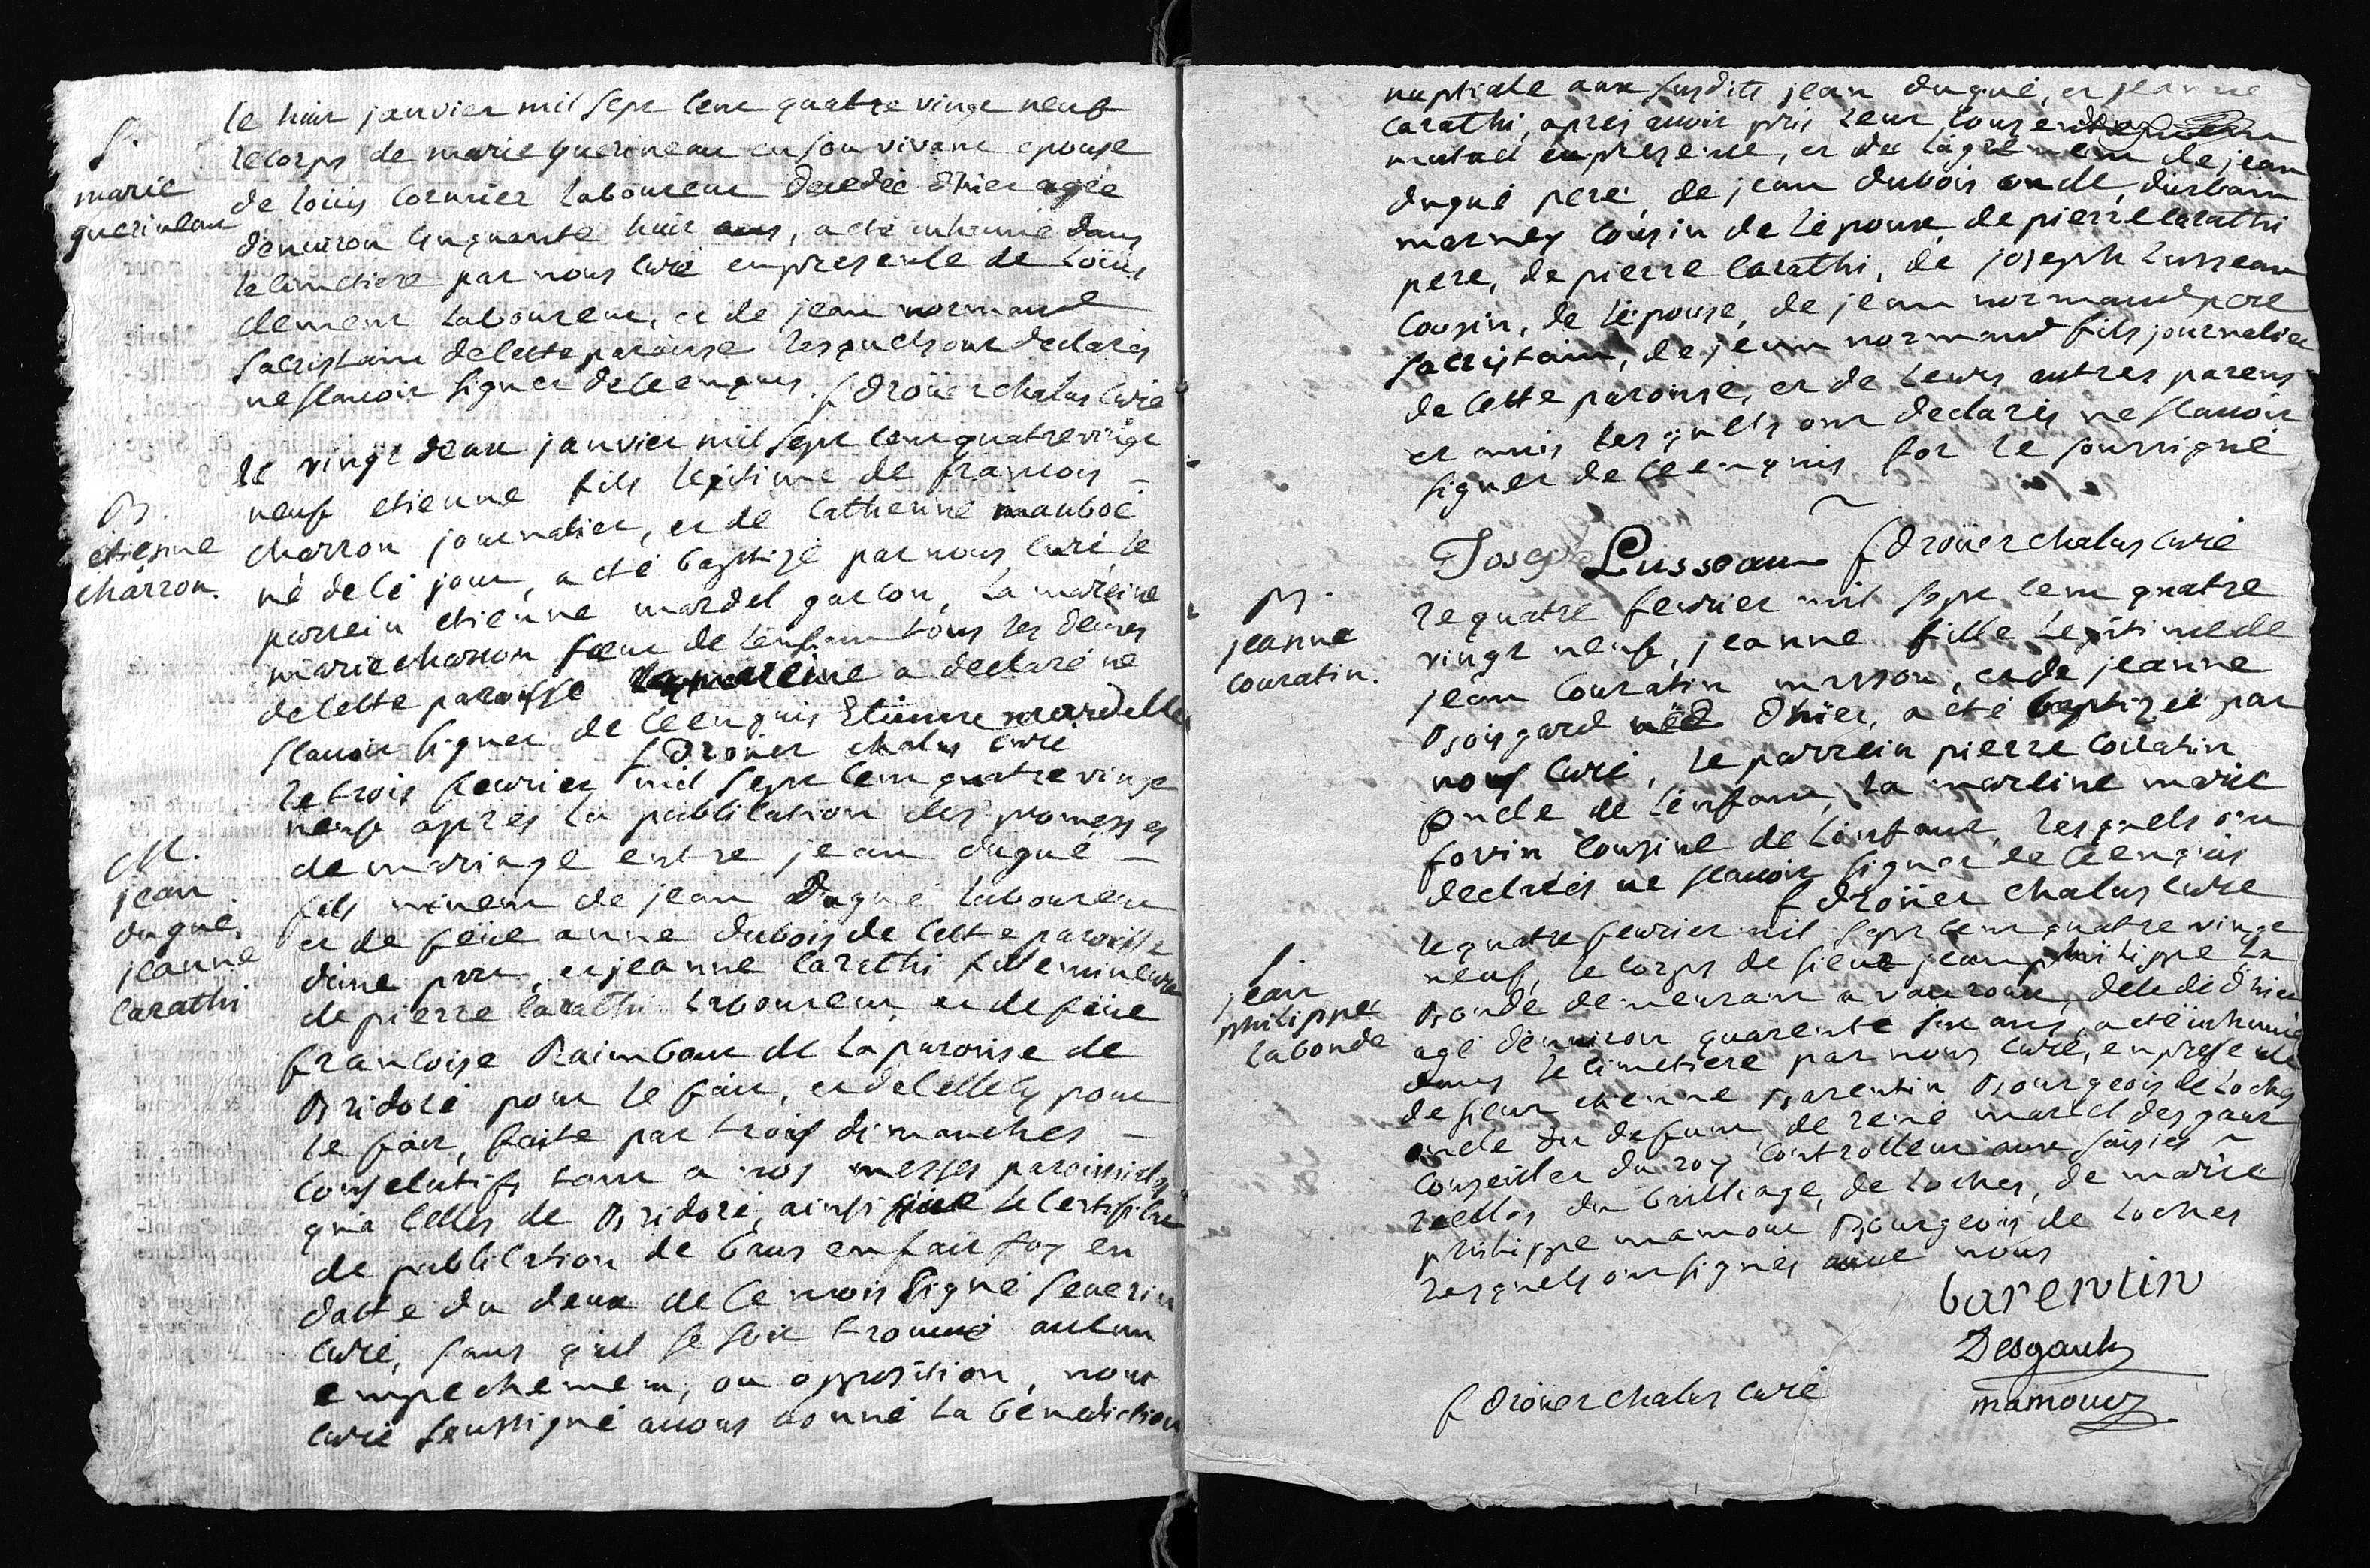 S.
marie
guerineau
le huit janvier mil sept cent quatre vingt neuf
le corps de marie guerineau en son vivant epouse
de loüis cormier laboureur decedée d'hier agée
d'environ cinquante huit ans, a eté inhumé dans
le cimetiere par nous curé en presence de Loüis
clement laboureur, et de jean normand
sacristain de cette paroisse lesquels ont declarés
ne scavoir signer de ce enquis. f droüer chalus curé
B.
etienne
charron.
le vingt deux janvier mil sept cent quatre vingt
neuf etienne fils legitime de francois –
charron journalier, et de Catherine mauboé
né de ce jour, a eté baptizé par nous curé, le
parrein etienne mardel garcon, La mareine
marie charron sœur de l'enfant tous les deux
de cette paroisse la mareine a declaré ne
scavoir signer de ce enquis Etienne mardelle
f Droüer chalus curé
M.
jean
dugué,
jeanne
carathi
le trois fevrier mil sept cent quatre vingt
neuf après la publication des promesses
de mariage entre jean dugué –
fils mineur de jean Dugué laboureur
et de feüe anne dubois de cette paroisse
d'une part, et jeanne Carathi fille mineure
de pierre carathi laboureur, et de feüe
francoise Raimbaut de la paroisse de
Bridoré pour le fait, et de celle cy pour
le fait, faite par trois dimanches –
consecutifs tant a nos messes paroissiales
qu'a celles de Bridoré, ainsi que le certificat
de publication de bans en fait foy en
datte du deux de ce mois Signé Severin
curé, sans qu'il se soit trouvé aucun
empechement, ou opposition, nous
curé soussigné avons donné la bénédiction
nuptiale aux susdits jean dugué, et jeanne
carathi, apres avoir pris leur consentement
mutuel en presence, et de l'agrement de jean
dugué pere, de jean dubois oncle, d'urbain
marnay cousin de l'epoux, de pierre carathi
pere, de pierre Carathi, de joseph Lusseau
cousin, de l'epouse, de jean normand pere
sacristain, de jean normand fils journalier
de cette paroisse, et de leurs autres parens
et amis lesquels ont declarés ne scavoir
signer de ce enquis for le soussigné
Joseph Lusseau f droüer chalus curé
B.
jeanne
couratin.
le quatre fevrier mil sept cent quatre
vingt neuf, jeanne fille legitime de
jean Couratin masson, et de jeanne
Boisgard née d'hier, a eté baptizée par
nous curé, le parrein pierre Couratin
oncle de l'enfant, la mareine marie
fovin Cousine de l'enfant, lesquels ont
declarés ne scavoir signer de ce enquis
f droüer chalus curé
S.
jean
philippe
labonde
le quatre fevrier mil sept cent quatre vingt
neuf, le corps de sieur jean philippe La
Bonde demeurant a vauroux, decedé d'hier
agé d'environ quarente six ans, a eté inhumé
dans le cimetiere par nous curé, en presence
de sieur etienne Barentin Bourgeois de Loches
oncle du defunt, de rené mardel desgaux
conseiller du roy controlleur aux saisies
reelles du bailliage, de Loches, de marie
philippe mamoux Bourgeois de Loches
lesquels ont signés avec nous
barentin
Desgault
f droüer chalus curé
mamoux